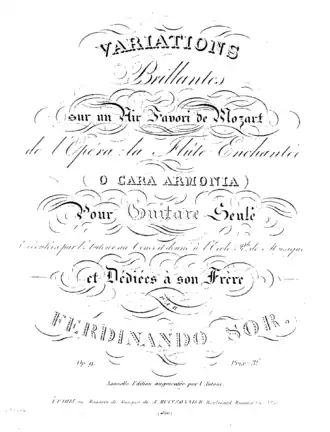 VARIATIONS
Brillantes
sur un Air Favori de Mozart
de l'Opéra: la Flûte Enchantée
(O CARA ARMONIA)
Pour Guitare Seule
Exécutées par l'Auteur au Concert donné à l'École Rle. de Musique
et Dédiées à son Frère
PAR
FERDINANDO SOR.
Op. 9. Prix: 3f.
Nouvelle Edition augmentée par l'Auteur.
A PARIS, au Magasin de Musique de A. MEISSONNIER, Boulevard